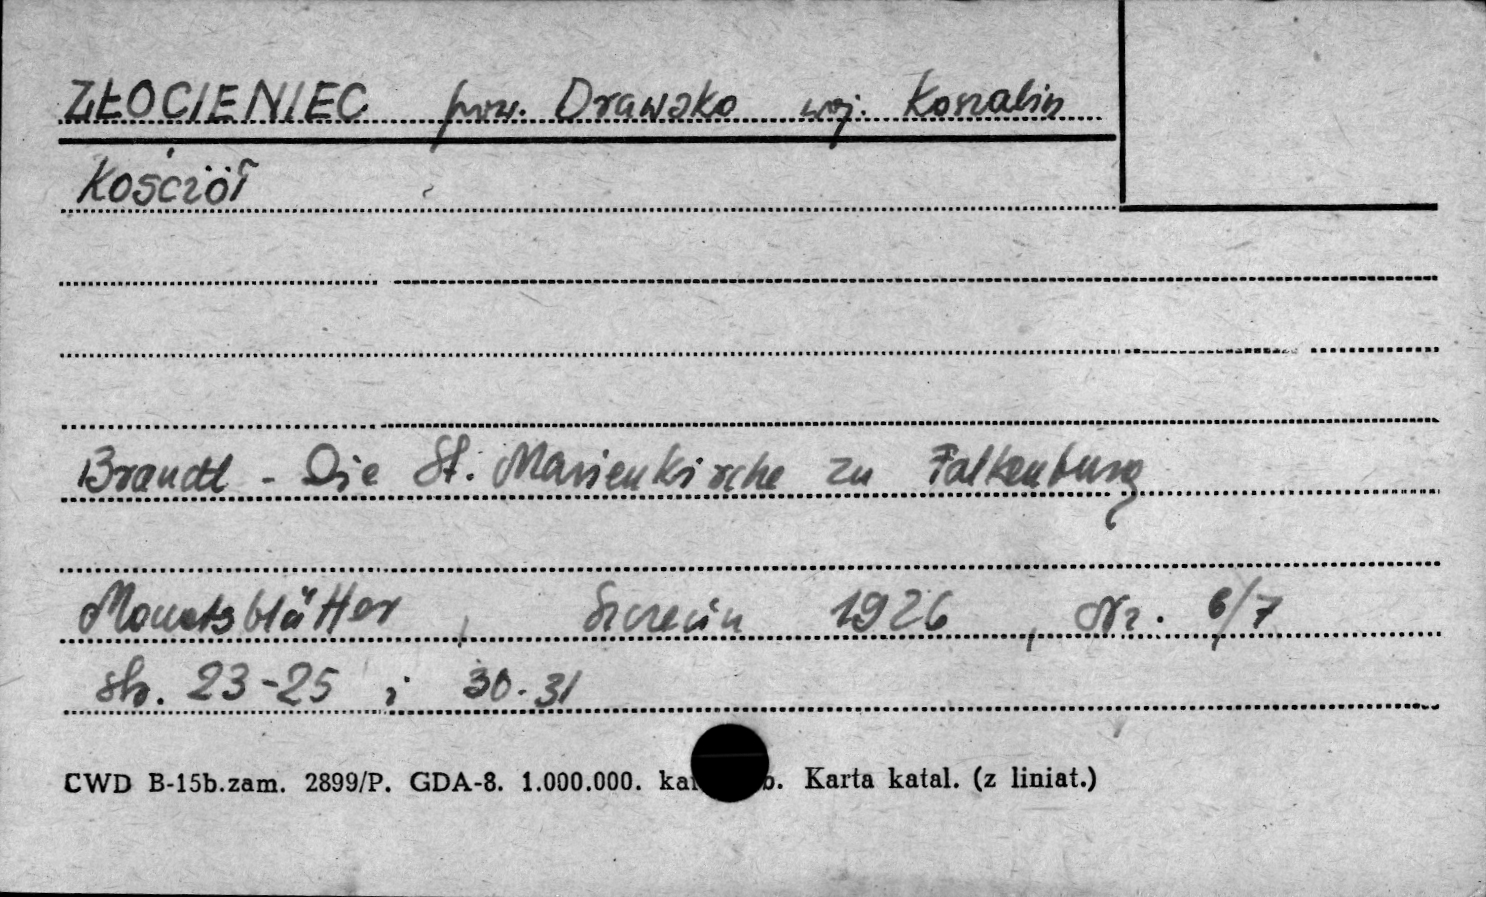 ZŁOCIENIEC pow. Drawsko woj. Koszalin
Kościół
Brandt - Die St. Marienkirche zu Falkenburg
Monatsblätter, Szczecin 1926, Nr. 6/7
str. 23-25 i 30-31
CWD B-15b.zam. 2899/P. GDA-8. 1.000.000. Karta katal. (z liniat.)